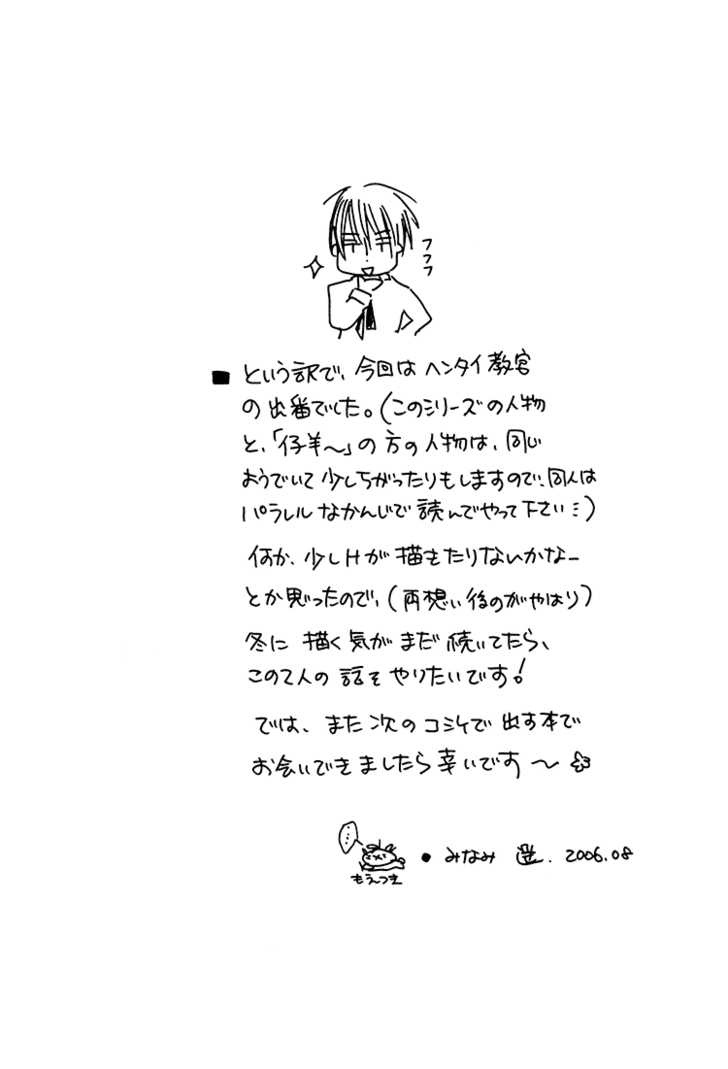 フフフ
■ という訳で、今回は ヘンタイ教官
の出番でした。(このシリーズの人物
と、「仔羊〜」の方の人物は、同じ
ようでいて少しちがったりもしますので、同人は
パラレルなかんじで読んでやって下さい…)
何か、少しHが描きたりないかなー
とか思ったので、(両想い後のがやはり)
冬に描く気がまだ続いてたら、
この2人の話をやりたいです!
では、また次のコミケで出す本で
お会いできましたら幸いです〜
…
もえつき
● みなみ 遥. 2006.08